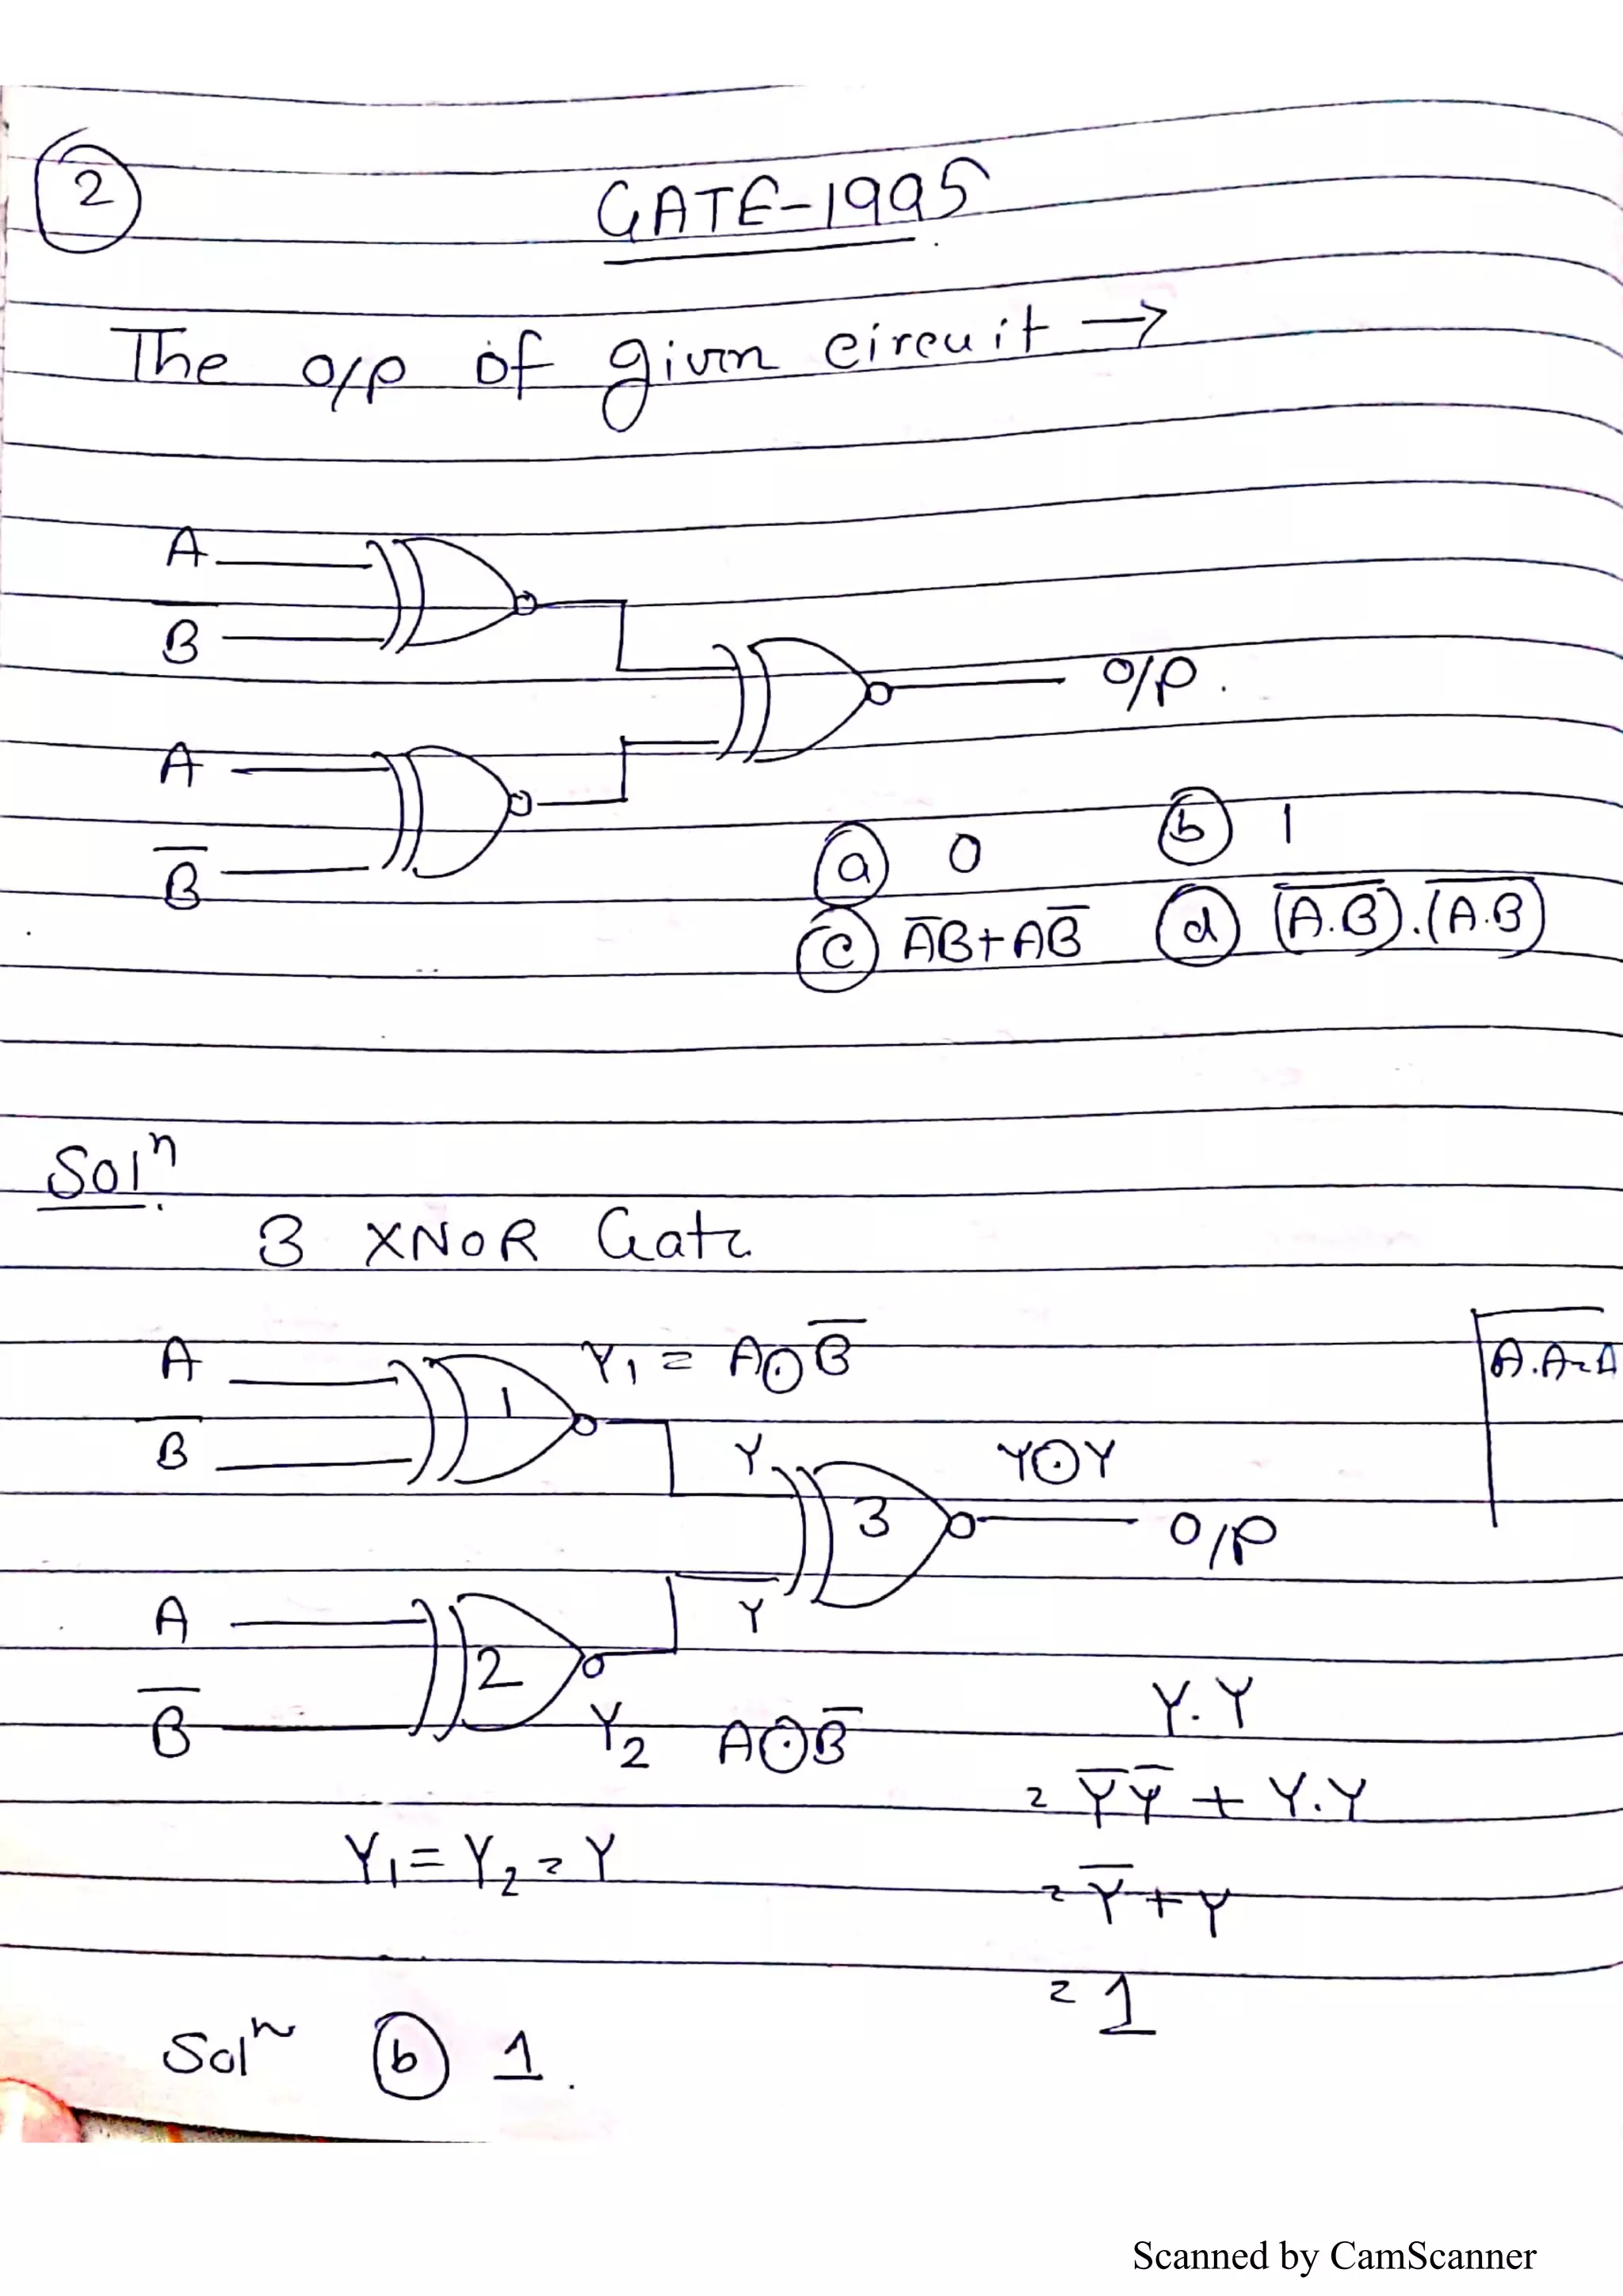 2
GATE-1995
The o/p of given circuit →
A
B̅
O/P.
A
B̅
(a) 0 (b) 1
(c) A̅B+AB̅ (d) (A̅.̅B̅).(A̅.̅B̅)
Solⁿ.
3 XNOR Gate
A
Y₁ = A⊙B̅
A.A=A
1
B̅
Y
Y⊙Y
3
O/P
A
Y
2
B̅
Y₂ A⊙B̅
Y.Y
= Y̅Y̅ + Y.Y
Y₁ = Y₂ = Y
= Y̅+Y
= 1
Solⁿ (b) 1.
Scanned by CamScanner